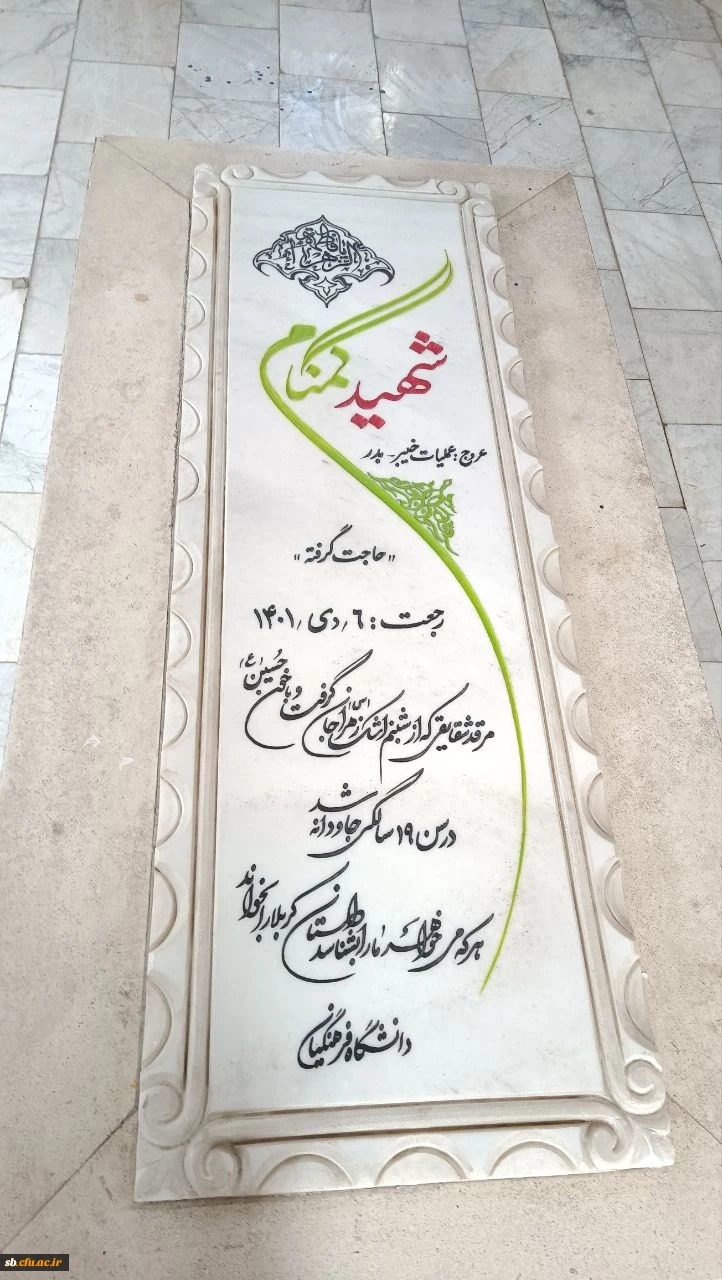 یا فاطمة الزهراء
شهید گمنام
عروج : عملیات خیبر - بدر
"حاجت گرفته"
رجعت : ۶ / دی / ۱۴۰۱
مرقد شقایقی که از شبنم اشک زهرا(س) جان گرفت و با خون حسین(ع)
در سن ۱۹ سالگی جاودانه شد
هر که می خواهد ما را بشناسد داستان کربلا را بخواند
دانشگاه فرهنگیان
sb.cfu.ac.ir